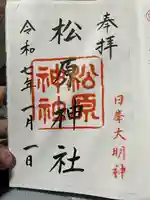 奉拝
日峯大明神
松原神社
松原
令和七年一月一日